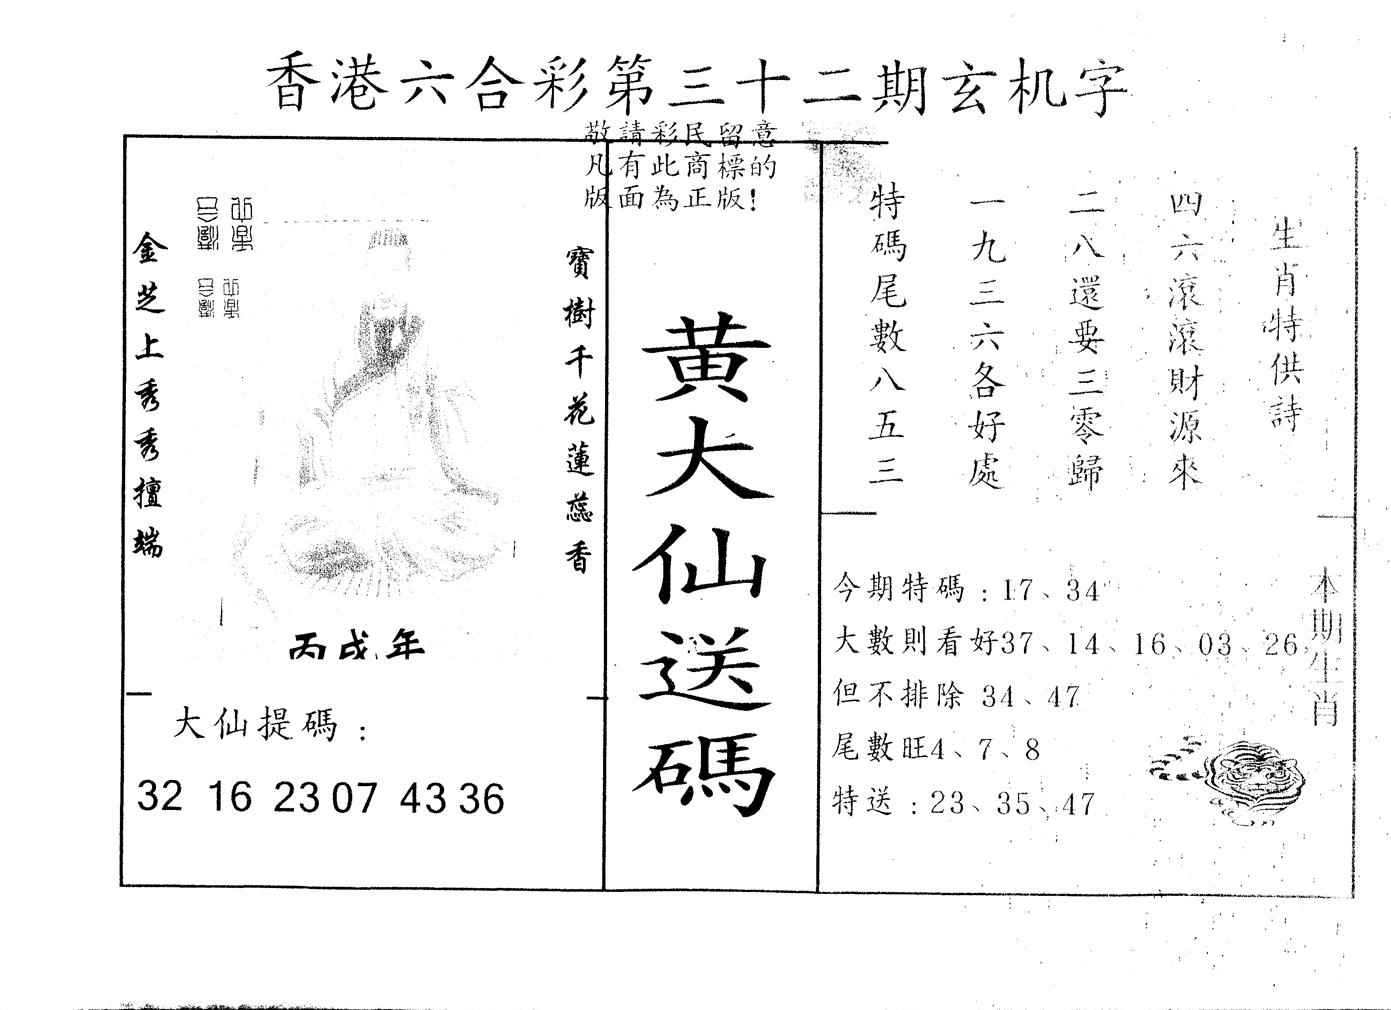 香港六合彩第三十二期玄机字
敬請彩民留意
凡有此商標的
版面為正版!
寶樹千花蓮蕊香
金芝上秀秀擅端
丙戌年
大仙提碼：
32 16 23 07 43 36
黄大仙送碼
生肖特供詩
四六滾滾財源來
二八還要三零歸
一九三六各好處
特碼尾數八五三
本期生肖
今期特碼：17、34
大數則看好37、14、16、03、26
但不排除 34、47
尾數旺4、7、8
特送：23、35、47